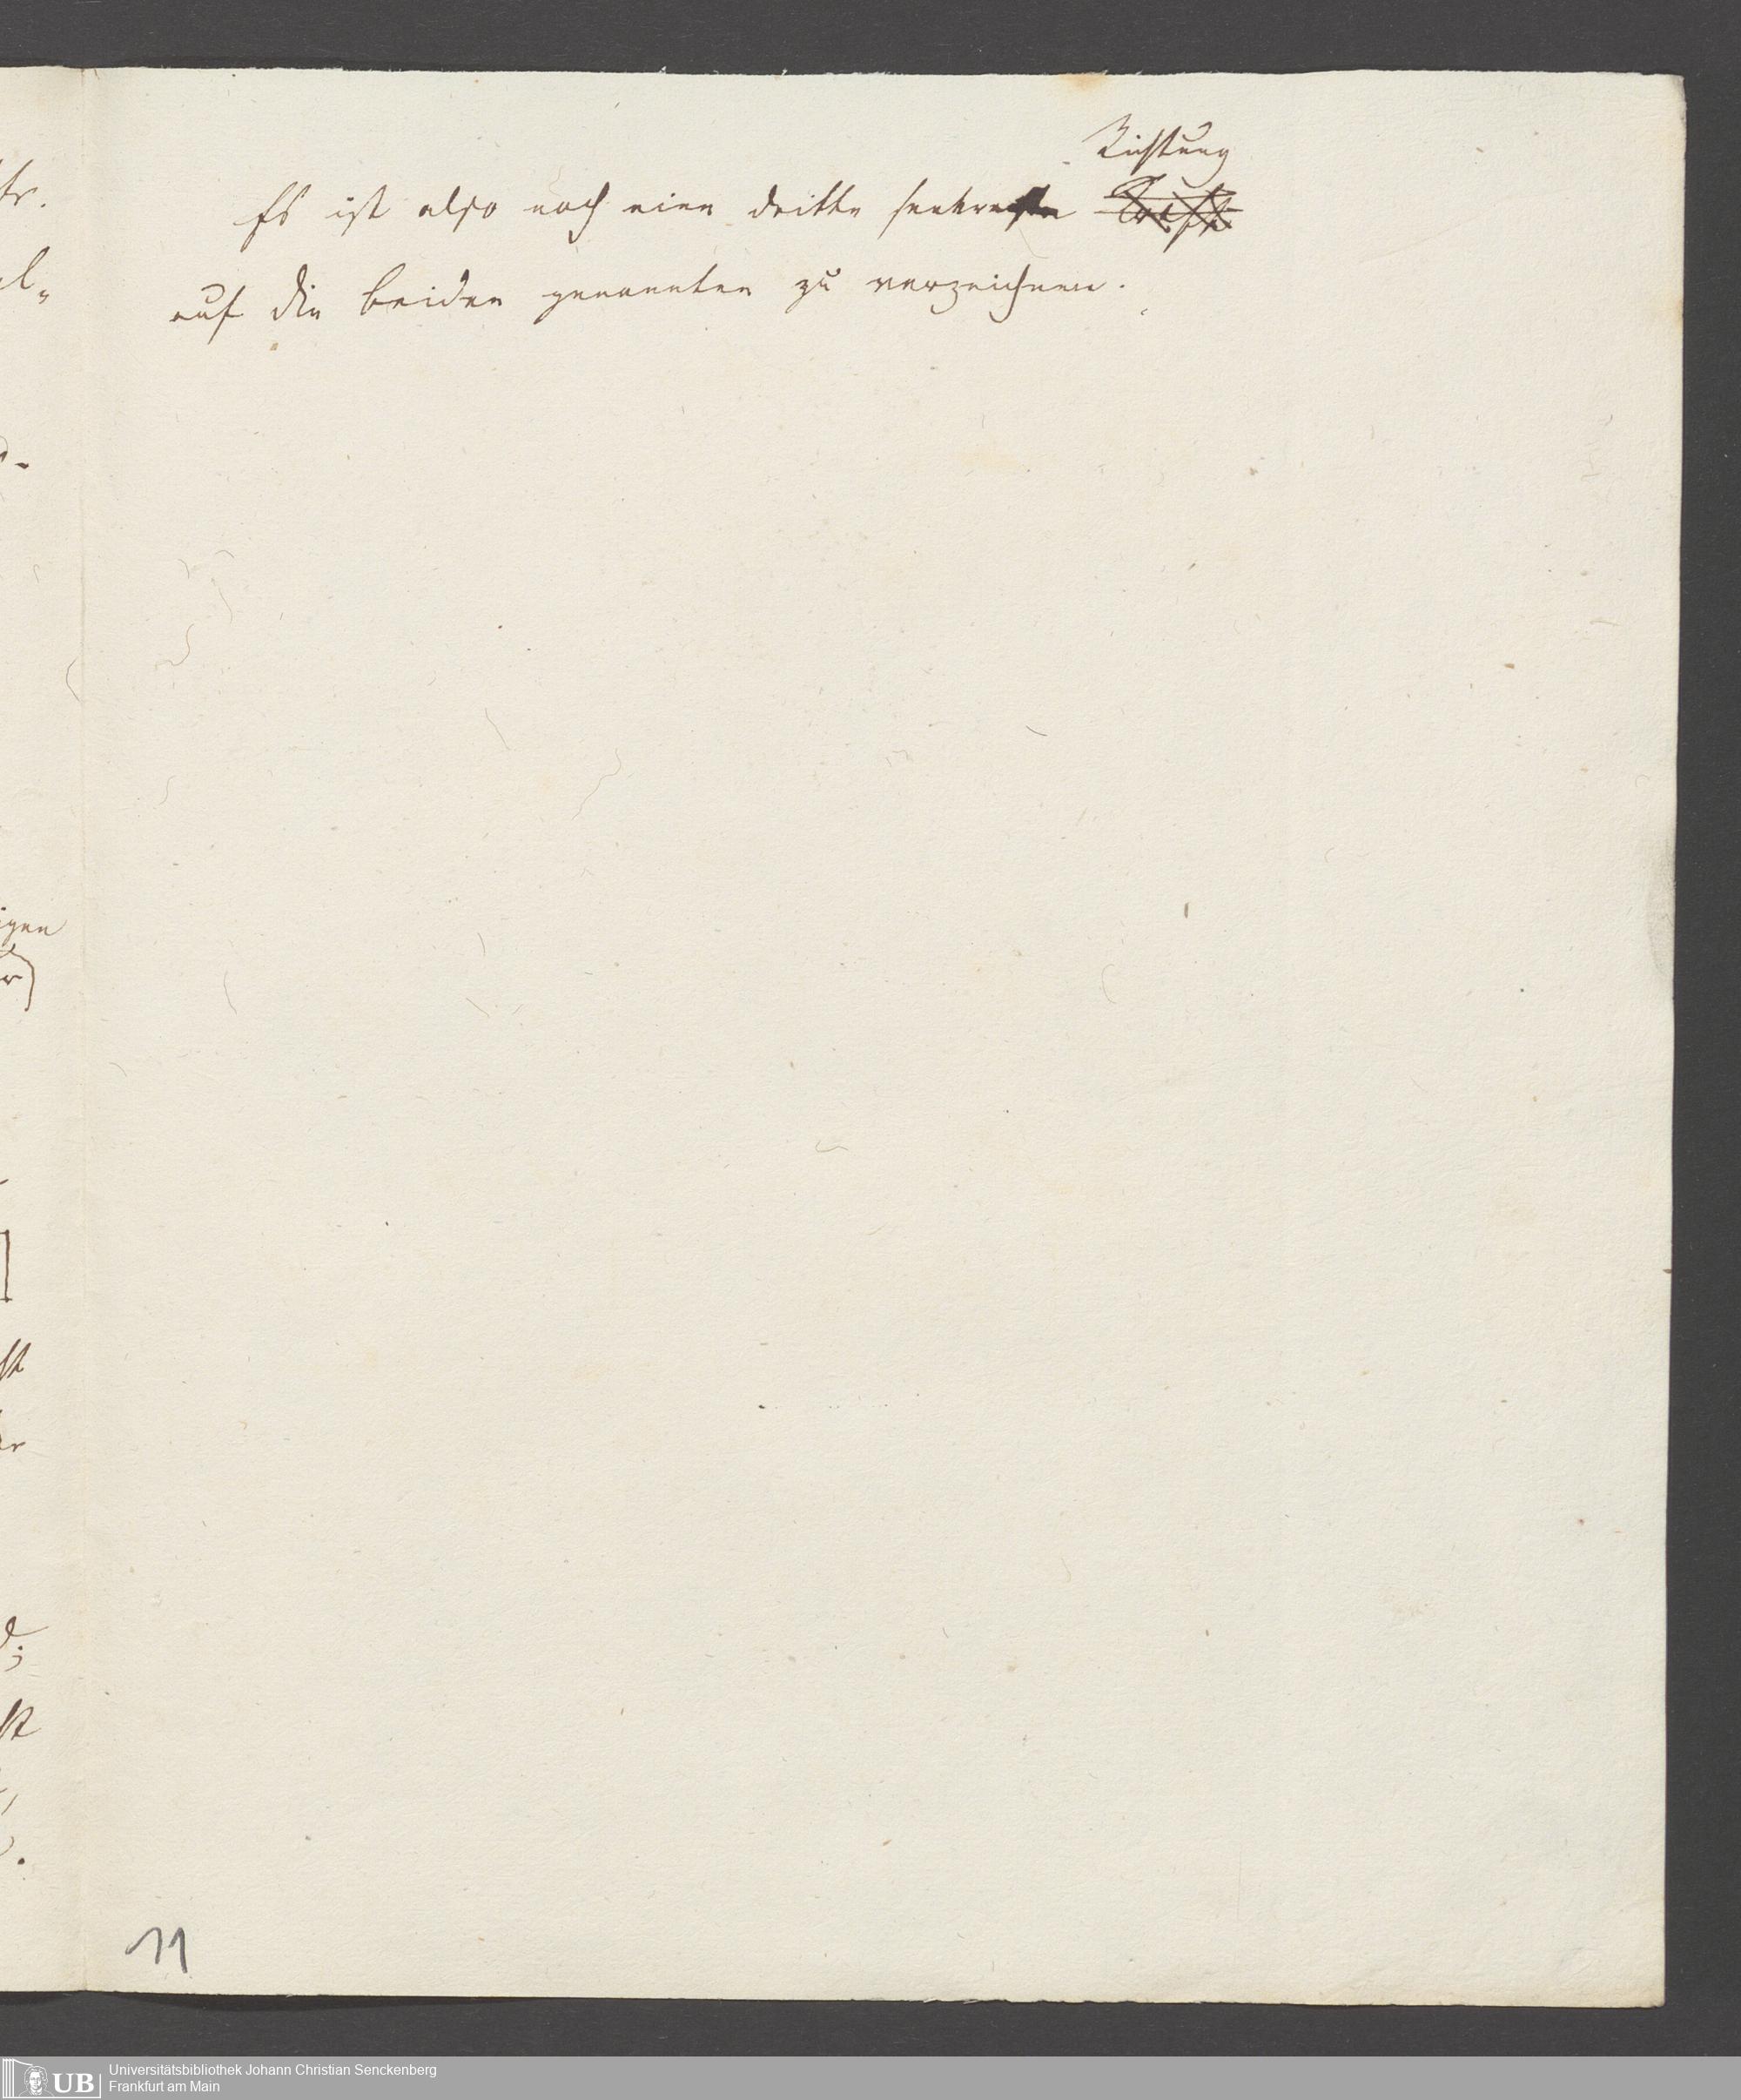 Richtung
Es ist also noch eine dritte senkrechte
auf die beiden genannten zu verzeichnen.
11
UB
Universitätsbibliothek Johann Christian Senckenberg
Frankfurt am Main